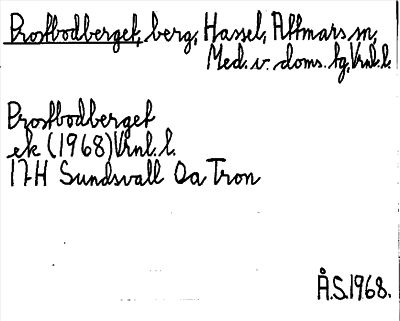 Prostbodberget, berg, Hassel, Attmars sn,
Med. v. doms. tg, Vrnl. l.
Prostbodberget
ek (1968) Vrnl. l.
17H Sundsvall Oa Tron
Å.S. 1968.